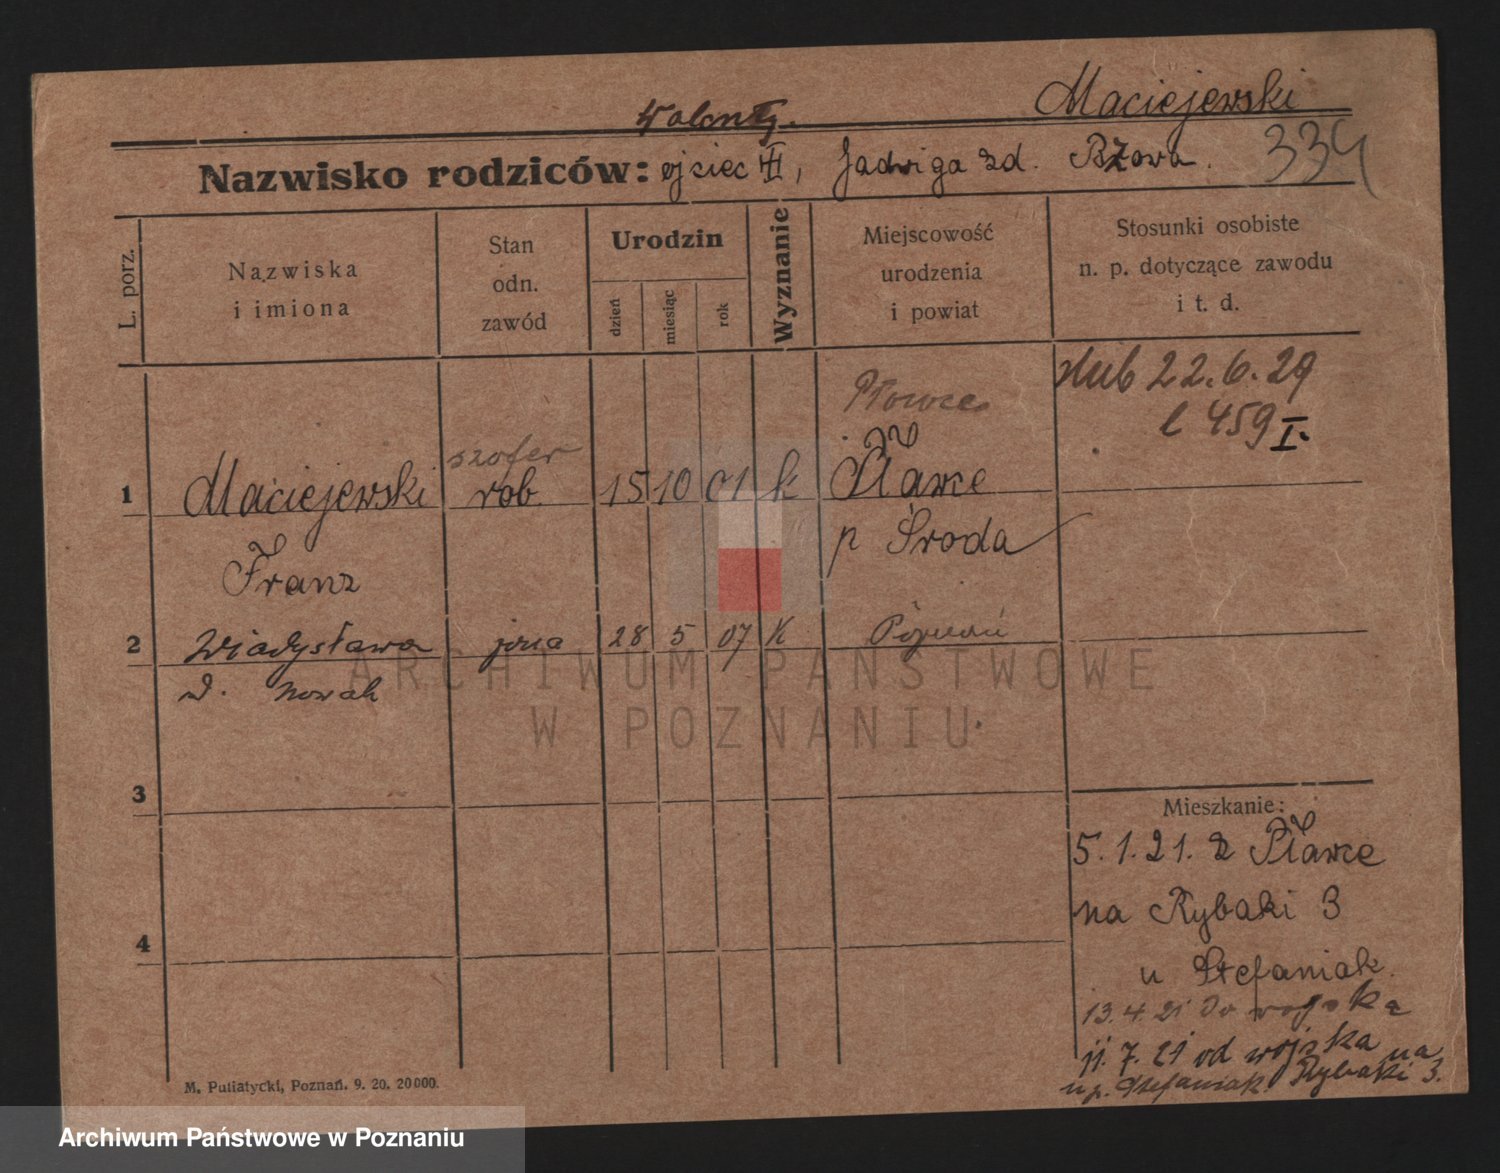 Maciejewski
Walenty.
Nazwisko rodziców: ojciec, Jadwiga zd. Bzowa.
334
L. porz.
Nazwiska
i imiona
Stan
odn.
zawód
Urodzin
dzień
miesiąc
rok
Wyznanie
Miejscowość
urodzenia
i powiat
Stosunki osobiste
n. p. dotyczące zawodu
i t. d.
ślub 22.6.29
l 459 I.
szofer
1 Maciejewski rob. 15 10 01 k Pławce
Franz p Środa
2 Władysława żona 28 5 07 K Poznań
d. Nowak
3
4
Mieszkanie:
5.1.21. z Pławce
na Rybaki 3
u Stefaniak.
13.4.21 do wojska
11.7.21 od wojska na
Stefaniak Rybaki 3.
M. Putiatycki, Poznań. 9. 20. 20000.
ARCHIWUM PAŃSTWOWE
W POZNANIU
Archiwum Państwowe w Poznaniu